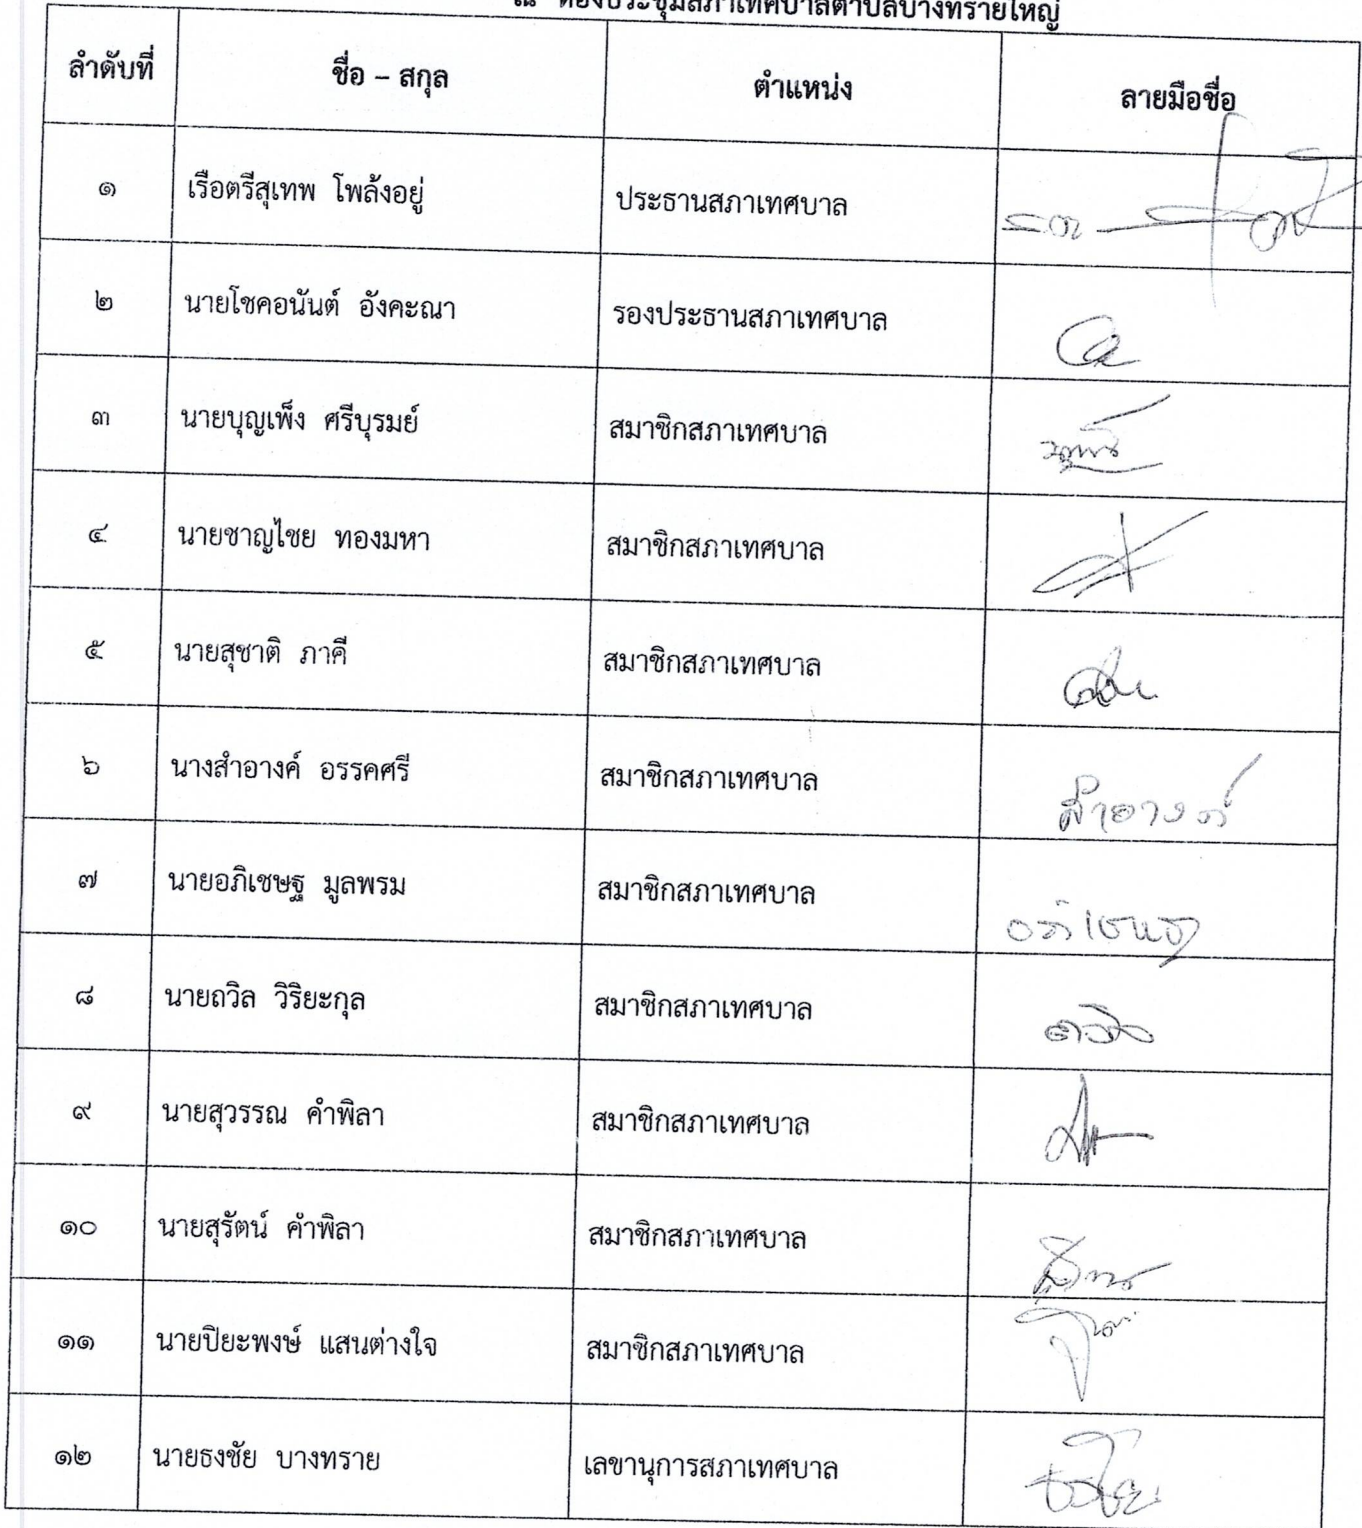 ณ ห้องประชุมสภาเทศบาลตำบลบางทรายใหญ่
ลำดับที่ ชื่อ – สกุล ตำแหน่ง ลายมือชื่อ
๑ เรือตรีสุเทพ โพล้งอยู่ ประธานสภาเทศบาล
๒ นายโชคอนันต์ อังคะณา รองประธานสภาเทศบาล
๓ นายบุญเพ็ง ศรีบุรมย์ สมาชิกสภาเทศบาล
๔ นายชาญไชย ทองมหา สมาชิกสภาเทศบาล
๕ นายสุชาติ ภาคี สมาชิกสภาเทศบาล
๖ นางสำอางค์ อรรคศรี สมาชิกสภาเทศบาล สำอางค์
๗ นายอภิเชษฐ มูลพรม สมาชิกสภาเทศบาล อภิเชษฐ
๘ นายถวิล วิริยะกุล สมาชิกสภาเทศบาล ถวิล
๙ นายสุวรรณ คำพิลา สมาชิกสภาเทศบาล
๑๐ นายสุรัตน์ คำพิลา สมาชิกสภาเทศบาล
๑๑ นายปิยะพงษ์ แสนต่างใจ สมาชิกสภาเทศบาล
๑๒ นายธงชัย บางทราย เลขานุการสภาเทศบาล ธงชัย